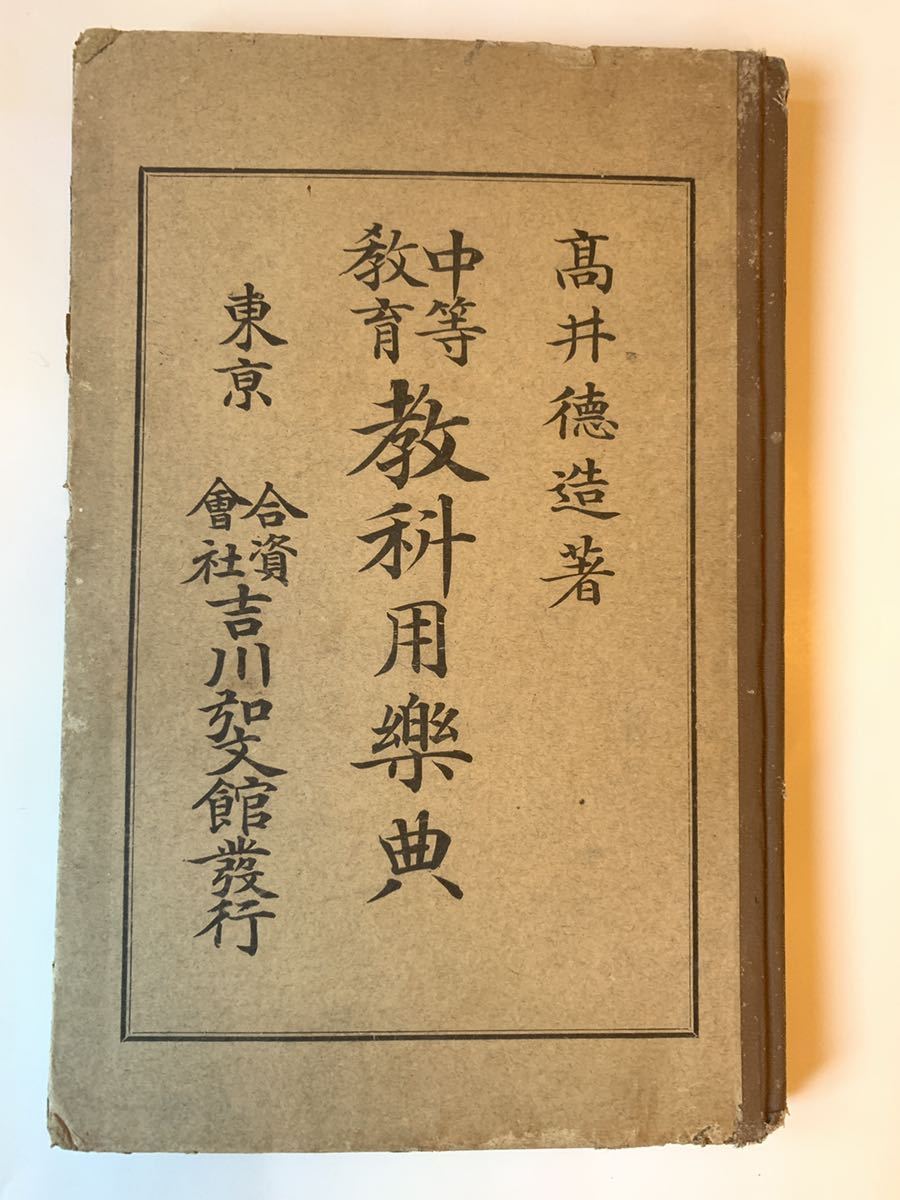 髙井德造著
中等
敎育
敎科用樂典
東京
合資
會社
吉川弘文館發行